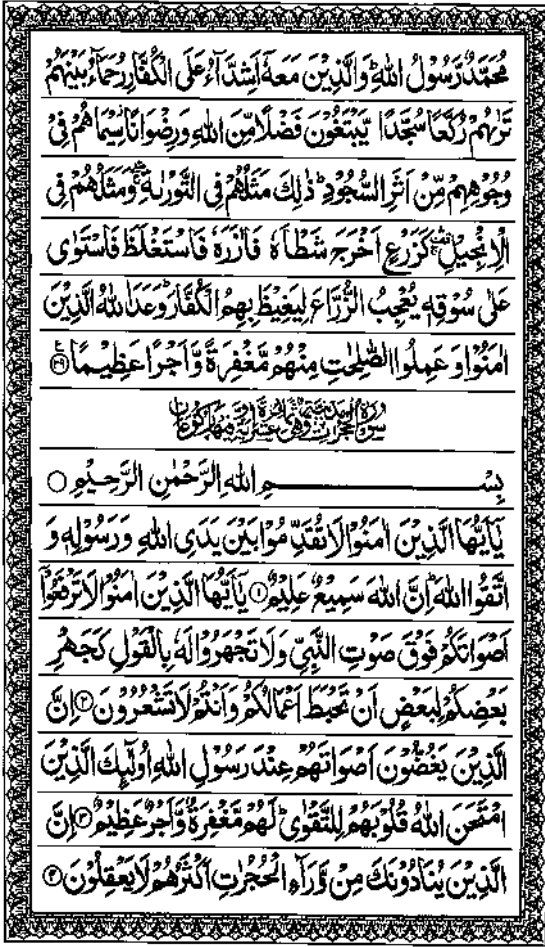 مُحَمَّدٌ رَّسُوْلُ اللّٰهِ ؕ وَالَّذِيْنَ مَعَهٗۤ اَشِدَّآءُ عَلَى الْكُفَّارِ رُحَمَآءُ بَيْنَهُمْ
تَرٰىهُمْ رُكَّعًا سُجَّدًا يَّبْتَغُوْنَ فَضْلًا مِّنَ اللّٰهِ وَرِضْوَانًا ؗ سِيْمَاهُمْ فِيْ
وُجُوْهِهِمْ مِّنْ اَثَرِ السُّجُوْدِ ؕ ذٰلِكَ مَثَلُهُمْ فِي التَّوْرٰىةِ ۛۖۚ وَمَثَلُهُمْ فِي
الْاِنْجِيْلِ ۛۚ كَزَرْعٍ اَخْرَجَ شَطْـَٔهٗ فَاٰزَرَهٗ فَاسْتَغْلَظَ فَاسْتَوٰى
عَلٰى سُوْقِهٖ يُعْجِبُ الزُّرَّاعَ لِيَغِيْظَ بِهِمُ الْكُفَّارَ ؕ وَعَدَ اللّٰهُ الَّذِيْنَ
اٰمَنُوْا وَعَمِلُوا الصّٰلِحٰتِ مِنْهُمْ مَّغْفِرَةً وَّاَجْرًا عَظِيْمًا ۟ ﴿۲۹﴾
بِسْمِ اللّٰهِ الرَّحْمٰنِ الرَّحِيْمِ ○
يٰۤاَيُّهَا الَّذِيْنَ اٰمَنُوْا لَا تُقَدِّمُوْا بَيْنَ يَدَيِ اللّٰهِ وَرَسُوْلِهٖ وَ
اتَّقُوا اللّٰهَ ؕ اِنَّ اللّٰهَ سَمِيْعٌ عَلِيْمٌ ﴿۱﴾ يٰۤاَيُّهَا الَّذِيْنَ اٰمَنُوْا لَا تَرْفَعُوْۤا
اَصْوَاتَكُمْ فَوْقَ صَوْتِ النَّبِيِّ وَلَا تَجْهَرُوْا لَهٗ بِالْقَوْلِ كَجَهْرِ
بَعْضِكُمْ لِبَعْضٍ اَنْ تَحْبَطَ اَعْمَالُكُمْ وَاَنْتُمْ لَا تَشْعُرُوْنَ ﴿۲﴾ اِنَّ
الَّذِيْنَ يَغُضُّوْنَ اَصْوَاتَهُمْ عِنْدَ رَسُوْلِ اللّٰهِ اُولٰٓئِكَ الَّذِيْنَ
امْتَحَنَ اللّٰهُ قُلُوْبَهُمْ لِلتَّقْوٰى ؕ لَهُمْ مَّغْفِرَةٌ وَّاَجْرٌ عَظِيْمٌ ﴿۳﴾ اِنَّ
الَّذِيْنَ يُنَادُوْنَكَ مِنْ وَّرَآءِ الْحُجُرٰتِ اَكْثَرُهُمْ لَا يَعْقِلُوْنَ ﴿۴﴾